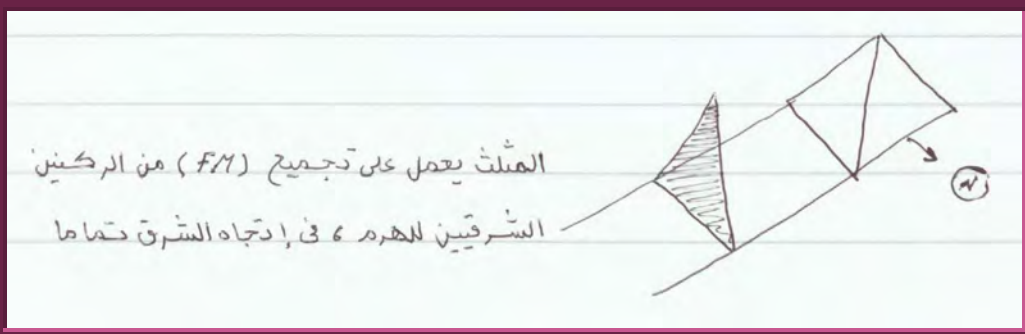 المثلث يعمل على تجميع (FM) من الركنين
الشرقيين للهرم ، في إتجاه الشرق تماما
N